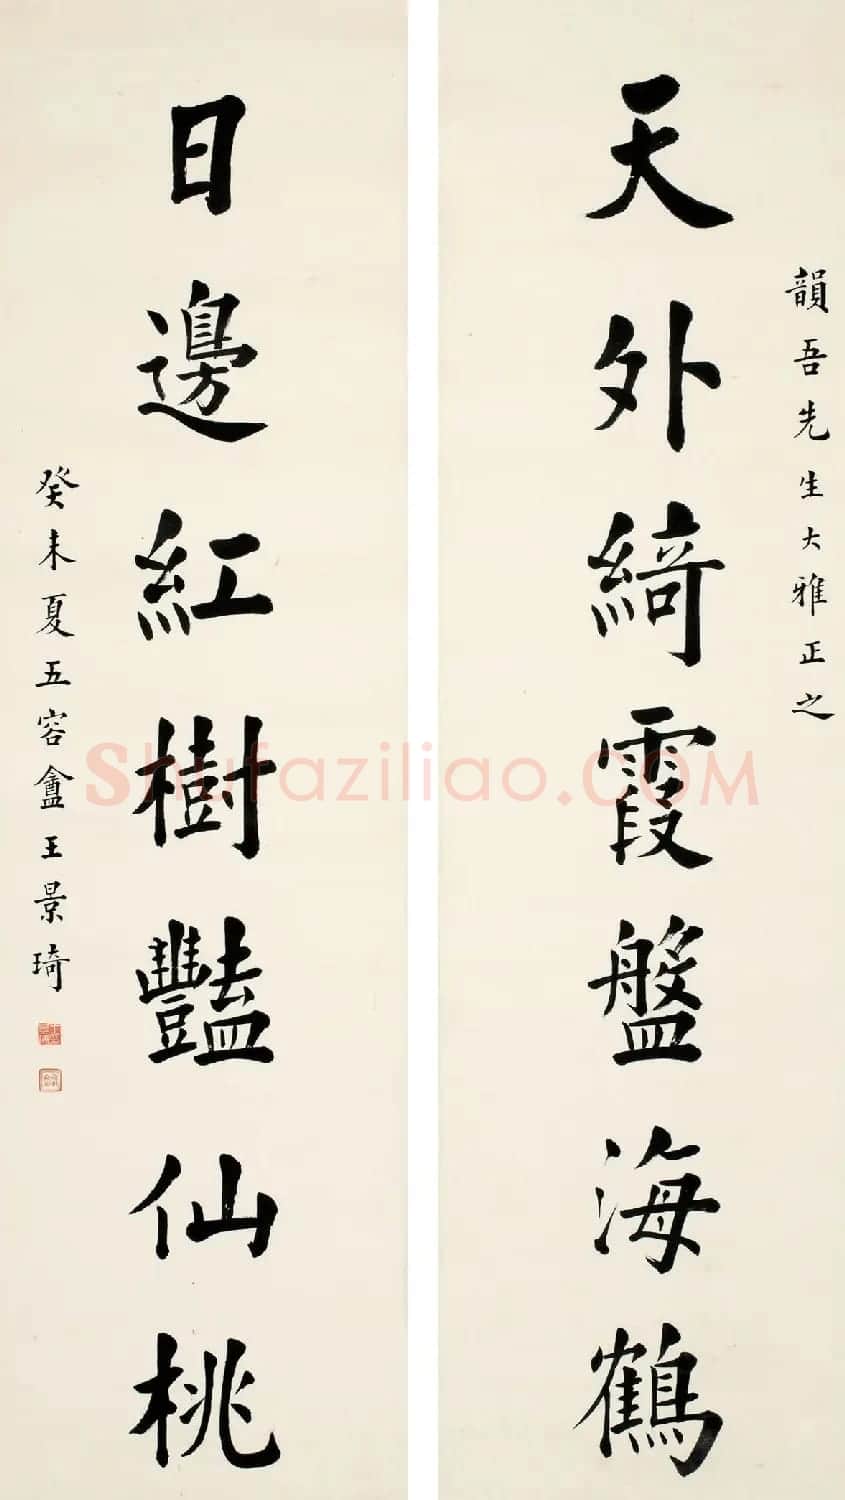 韻吾先生大雅正之
天外綺霞盤海鶴
日邊紅樹豔仙桃
癸未夏五容盦王景琦
Shufaziliao.COM